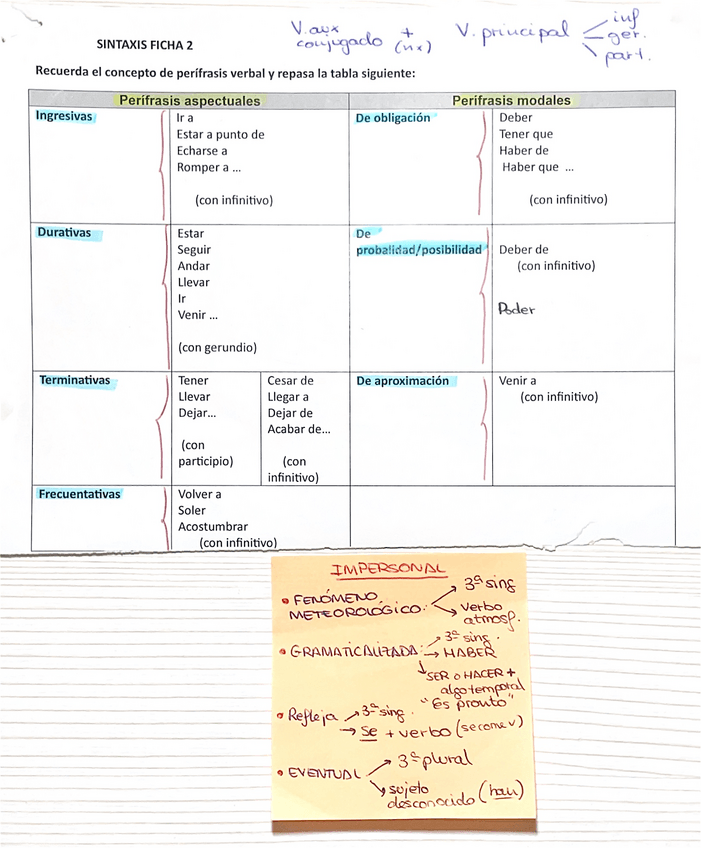 V. aux + V. principal inf
conjugado (nx) ger.
part.
SINTAXIS FICHA 2
Recuerda el concepto de perífrasis verbal y repasa la tabla siguiente:
Perífrasis aspectuales
Perífrasis modales
Ingresivas
Ir a
Estar a punto de
Echarse a
Romper a ...
(con infinitivo)
De obligación
Deber
Tener que
Haber de
Haber que ...
(con infinitivo)
Durativas
Estar
Seguir
Andar
Llevar
Ir
Venir ...
(con gerundio)
De
probalidad/posibilidad
Deber de
(con infinitivo)
Poder
Terminativas
Tener
Llevar
Dejar...
(con
participio)
Cesar de
Llegar a
Dejar de
Acabar de...
(con
infinitivo)
De aproximación
Venir a
(con infinitivo)
Frecuentativas
Volver a
Soler
Acostumbrar
(con infinitivo)
IMPERSONAL
• FENÓMENO 3ª sing
METEOROLÓGICO: verbo
atmosf.
3ª sing.
• GRAMATICALIZADA: → HABER
SER o HACER +
algo temporal
"Es pronto"
• Refleja → 3ª sing.
→ Se + verbo (se come v)
• EVENTUAL 3ª plural
sujeto
desconocido (han)